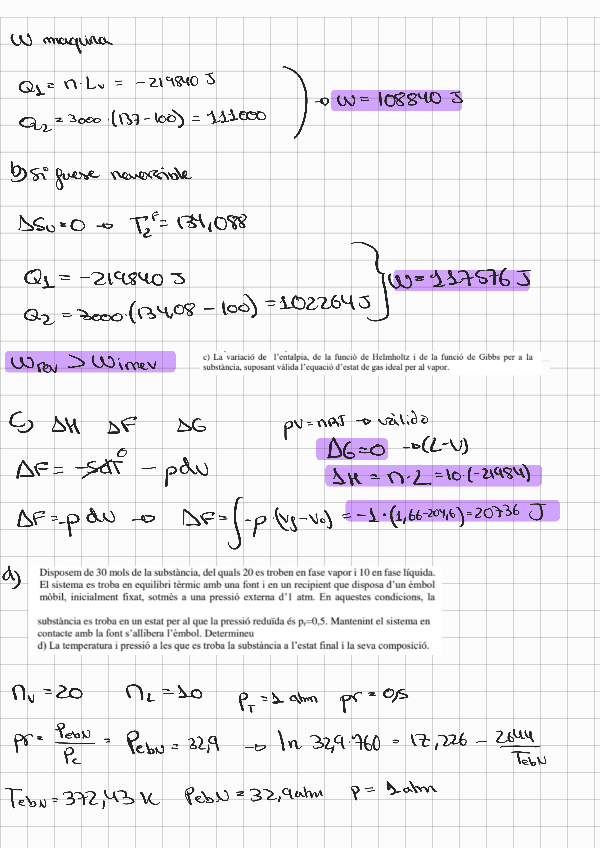 W maquina
Q₁ = n·Lv = -219840 J
Q₂ = 3000·(137-100) = 111000
→ W = 108840 J
b) Si fuese reversible
ΔSu=0 → T₂ᶠ = 134,088
Q₁ = -219840 J
Q₂ = 3000·(134,08 - 100) = 102264 J
W = 117576 J
Wrev > Wirrev
c) La variació de l'entalpia, de la funció de Helmholtz i de la funció de Gibbs per a la
substància, suposant vàlida l'equació d'estat de gas ideal per al vapor.
c) ΔH ΔF ΔG
pV=nRT → válido
ΔG=0 → (L-V)
ΔF = -SdT⁰ - pdv
ΔH = n·L = 10·(-21984)
ΔF=-pdv → ΔF = ∫-p (Vf-V₀) = -1·(1,66-204,6)=20736 J
d) Disposem de 30 mols de la substància, del quals 20 es troben en fase vapor i 10 en fase líquida.
El sistema es troba en equilibri tèrmic amb una font i en un recipient que disposa d'un èmbol
mòbil, inicialment fixat, sotmès a una pressió externa d'1 atm. En aquestes condicions, la
substància es troba en un estat per al que la pressió reduïda és pᵣ=0,5. Mantenint el sistema en
contacte amb la font s'allibera l'èmbol. Determineu
d) La temperatura i pressió a les que es troba la substància a l'estat final i la seva composició.
nv = 20 nL = 10 PT = 1 atm pr = 0,5
pr = PebN/Pc = PebN = 32,9 → ln 32,9·760 = 17,226 - 2644/TebN
TebN = 372,43 K PebN = 32,9atm p = 1atm